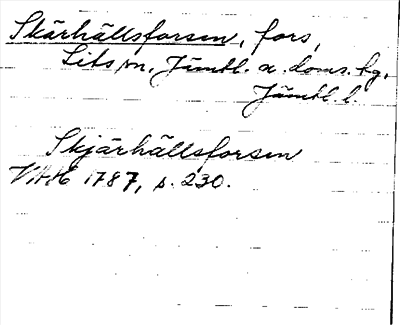 Skärhällsforsen, fors,
Lits sn, Jämtl. n. doms. hg,
Jämtl. l.
Skjärhällsforsen
VAH 1787, s. 230.